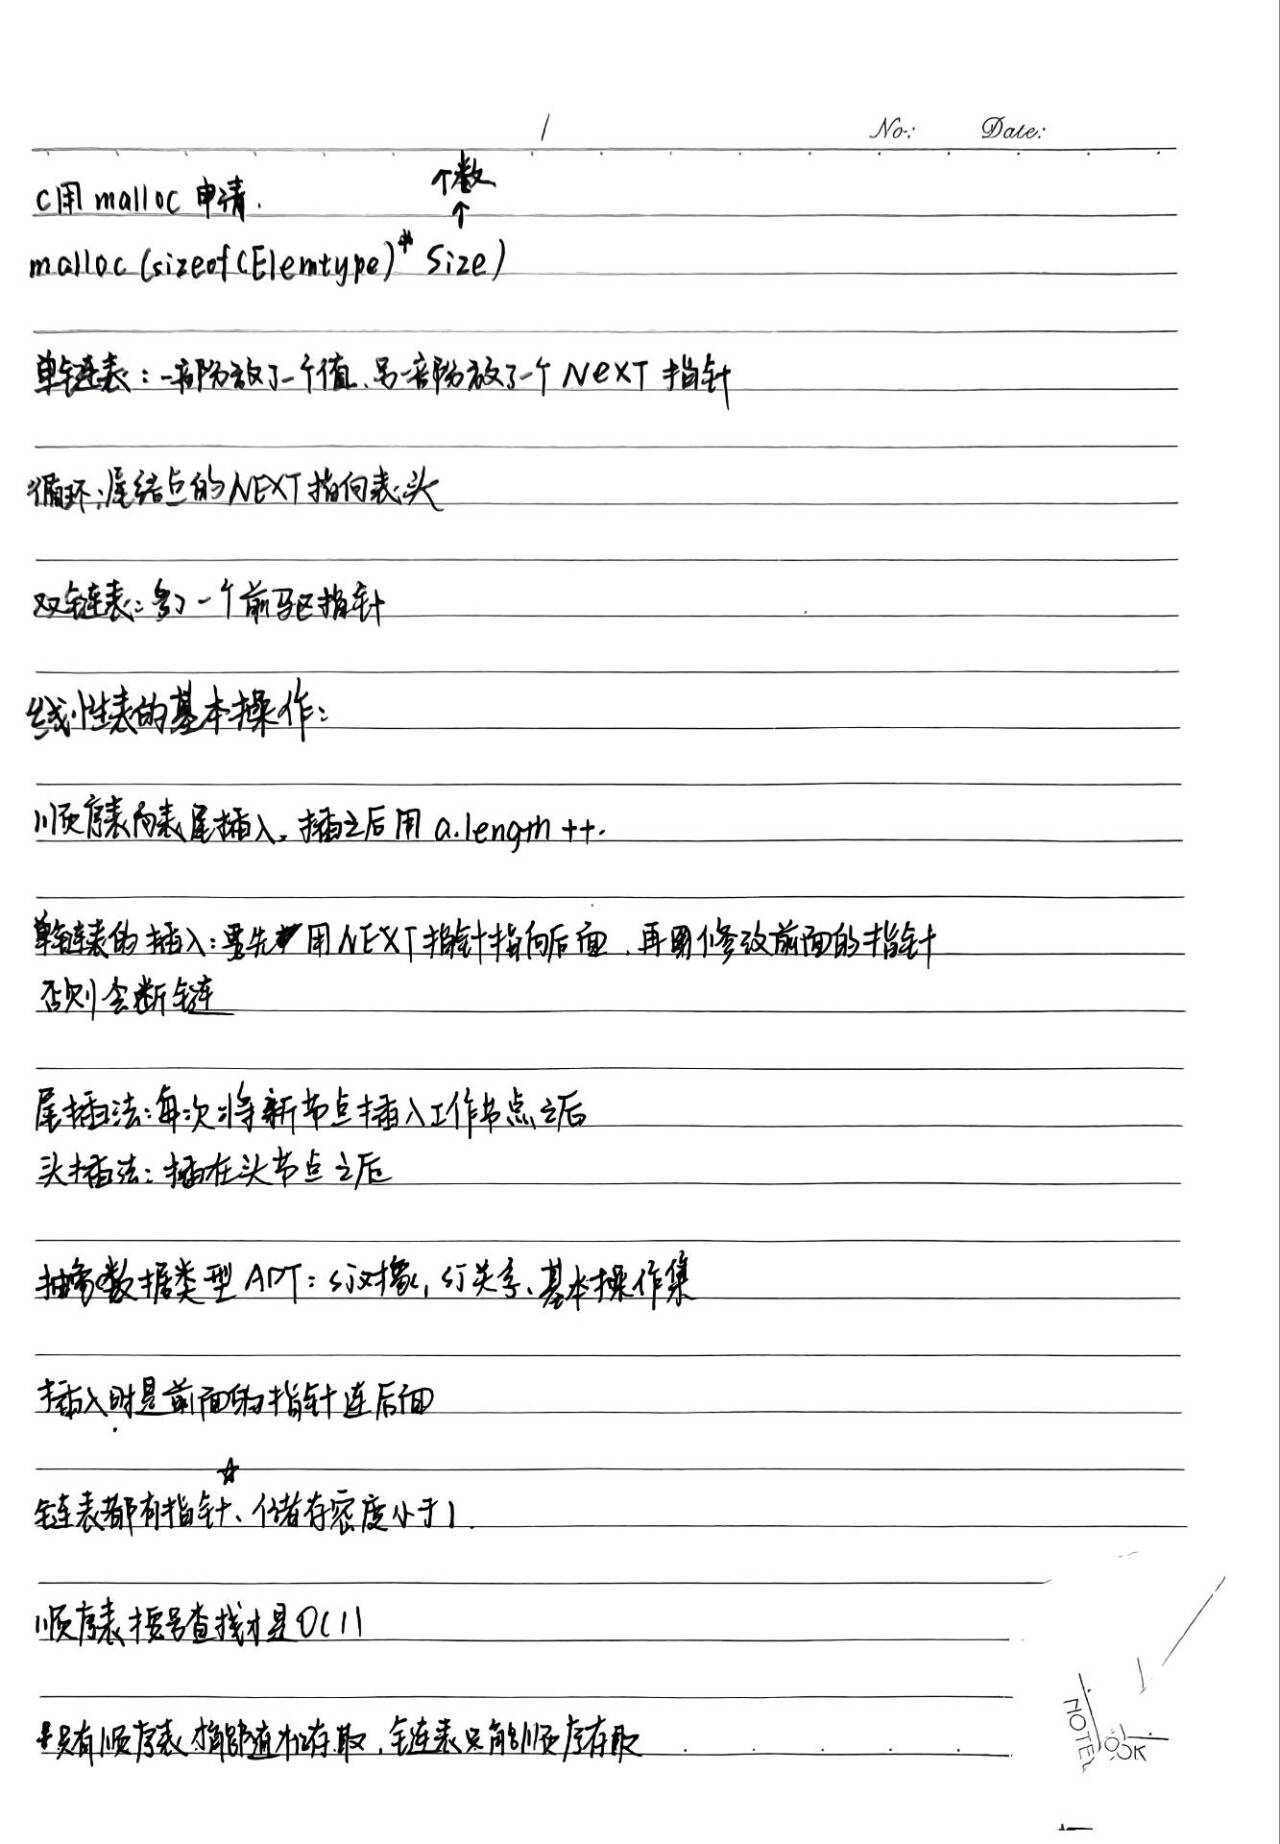 No: Date:
个数
↑
C用 malloc 申请.
malloc (sizeof(Elemtype)* Size)
单链表：一部分放了一个值、另一部分放了一个 NEXT 指针
循环：尾结点的NEXT指向表头
双链表：多了一个前驱指针
线性表的基本操作：
顺序表向表尾插入，插之后用 a.length ++.
单链表的插入：要先用NEXT指针指向后面，再用修改前面的指针
否则会断链
尾插法：每次将新节点插入工作节点之后
头插法：插在头节点之后
抽象数据类型 ADT：对象，关系、基本操作集
插入时是前面的指针连后面
☆
链表都有指针、储存密度小于1.
顺序表按号查找才是O(1)
*只有顺序表才能随机存取，链表只能顺序存取
NOTEBOOK